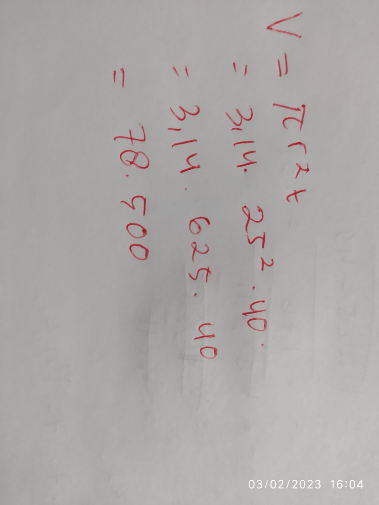 V = π r 2 t
= 3,14. 25². 40.
= 3,14. 625. 40
= 78.500
03/02/2023 16:04